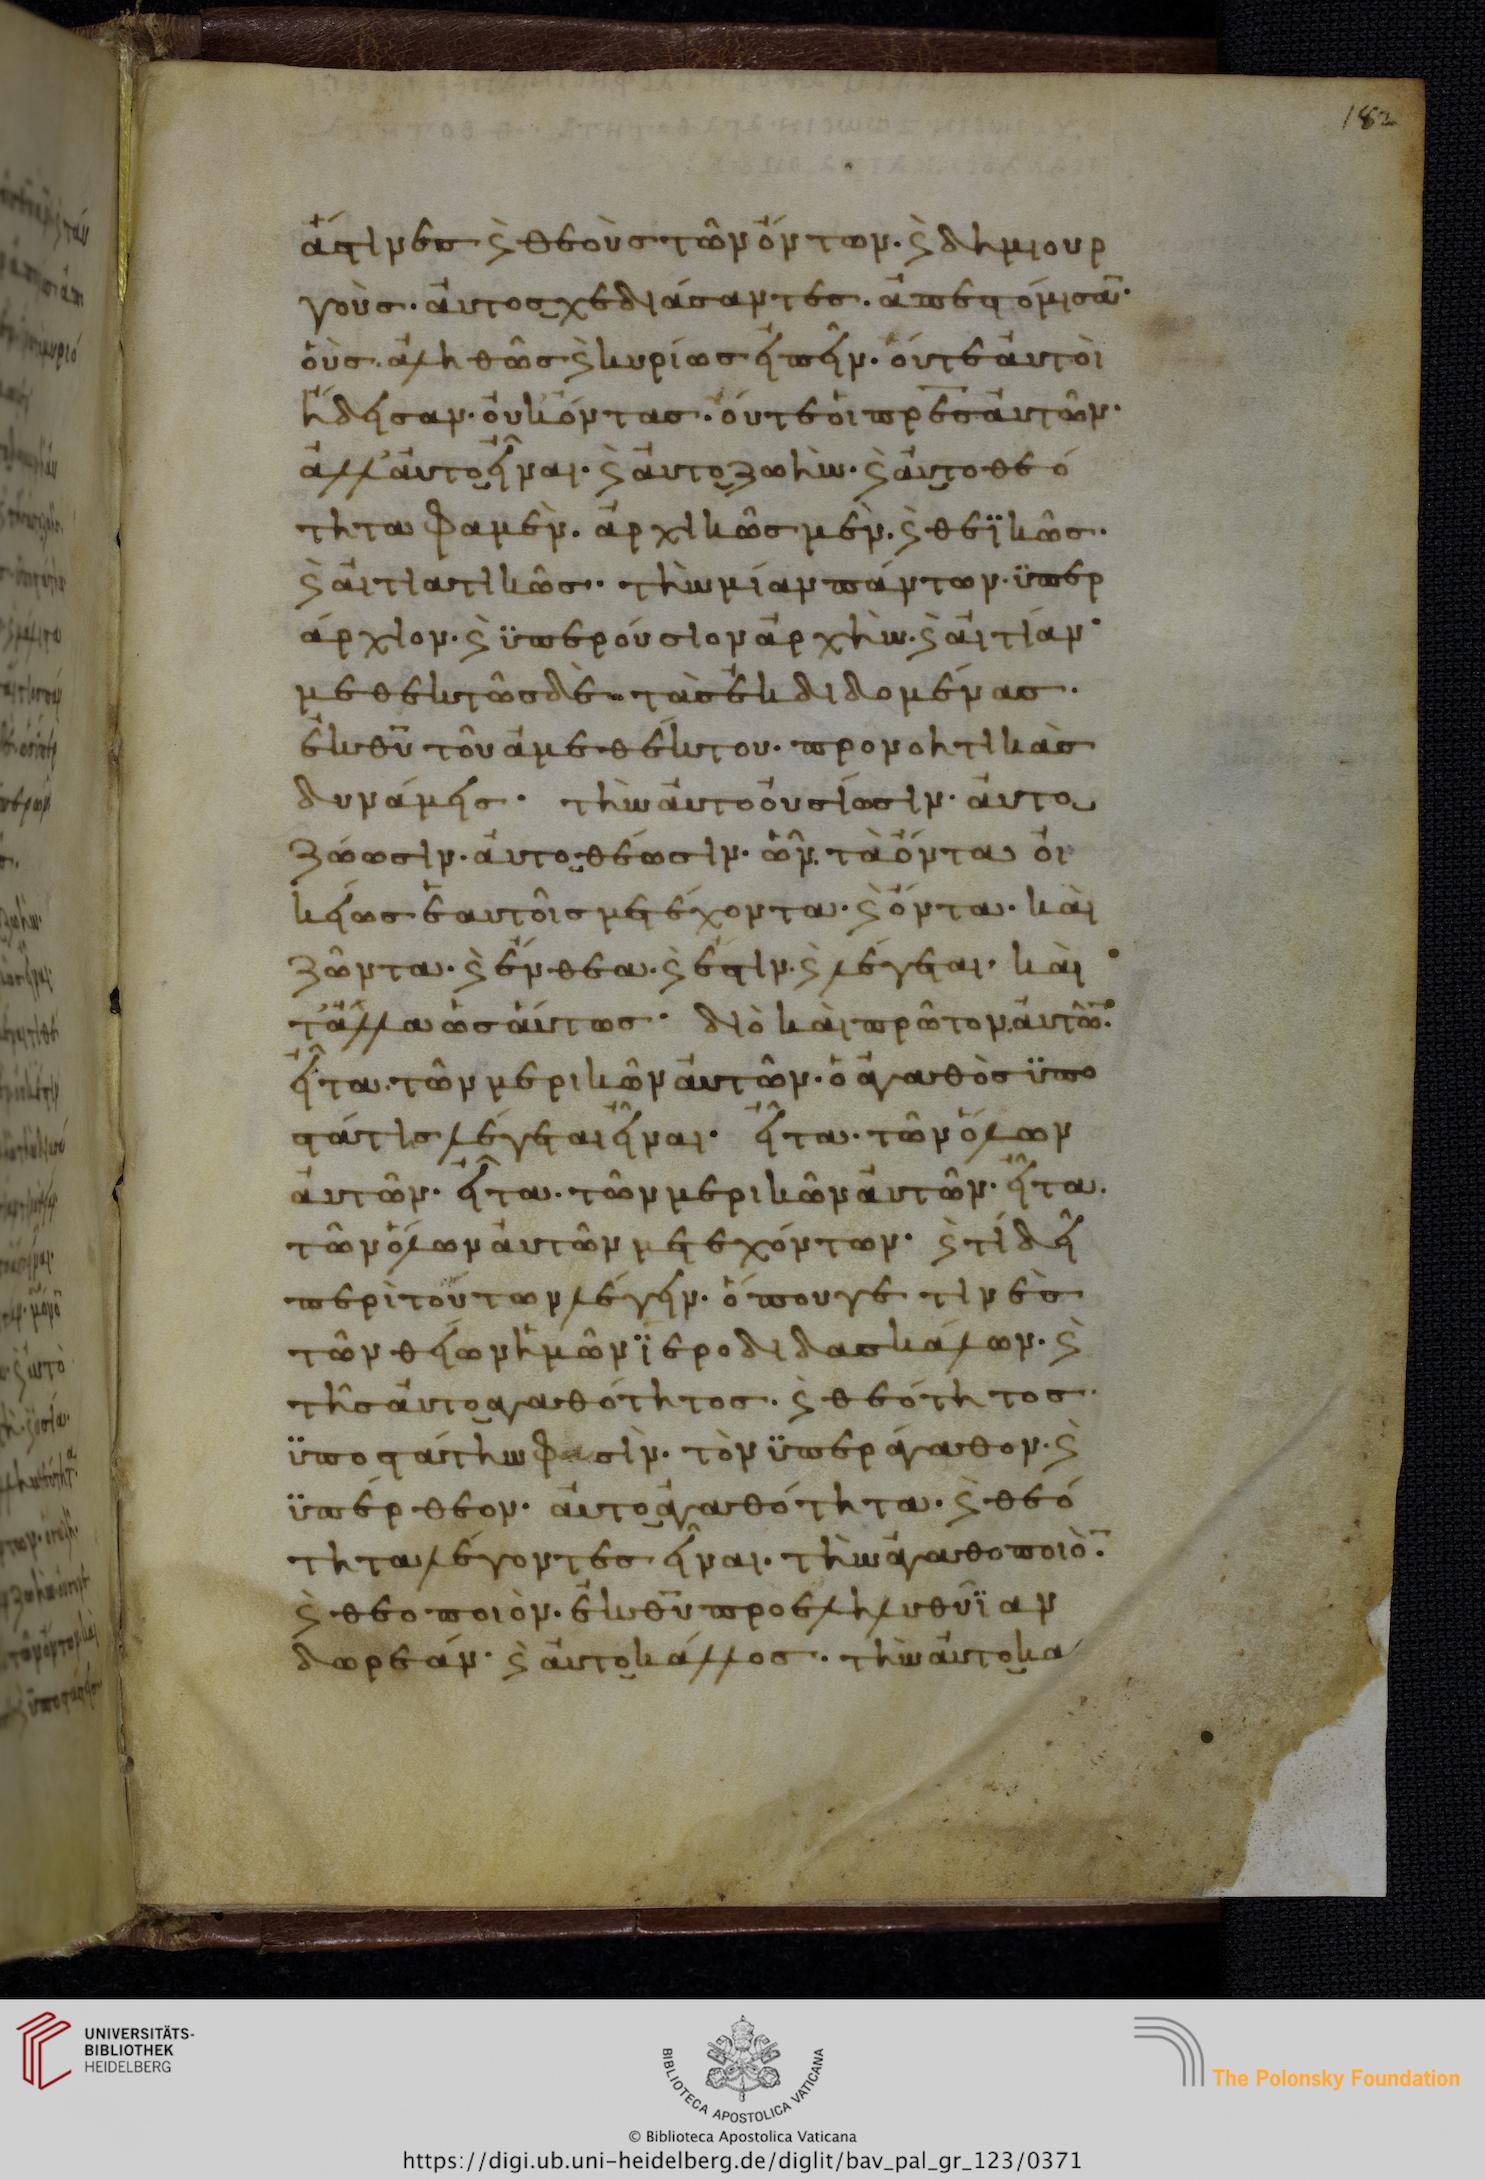 ἅστινες ϗ θεοὺς τῶν ὄντων· ϗ δημιουρ
γοὺς· αὐτοσχεδιάσαντες· ἀπεστόμισα̅·
οὓς· ἀληθῶς ϗ κυρίως εἰπεῖν· οὔτε αὐτοὶ
ἤδεισαν· οὐκ ὄντας· οὔτε οἱ πρ̅ες αὐτῶν·
ἀλλ' αὐτοεῖναι· ϗ αὐτοζωὴν· ϗ αὐτοθεό
τητα φαμὲν· ἀρχικῶς μὲν· ϗ θεϊκῶς·
ϗ αἰτιατικῶς· τὴν μίαν πάντων· ὑπερ
άρχιον· ϗ ὑπερούσιον ἀρχὴν· ϗ αἰτίαν·
μεθεκτῶς δὲ· τὰς ἐκδιδομένας·
ἐκ θυ̅ τοῦ ἀμεθέκτου· προνοητικὰς
δυνάμεις· τὴν αὐτοουσίωσιν· αὐτο
ζώωσιν· αὐτοθέωσιν· ὧν τὰ ὄντα οἰ
κείως ἑαυτοῖς μετέχοντα· ϗ ὄντα· καὶ
ζῶντα· ϗ ἔνθεα· ϗ ἔστιν· ϗ λέγεται· καὶ
τἄλλα ὡσαύτως· διὸ καὶ πρῶτον αὐτῶ̅·
εἶτα· τῶν μερικῶν αὐτῶν· ὁ ἀγαθὸς ὑπο
στάτις λέγεται εἶναι· εἶτα· τῶν ὅλων
αὐτῶν· εἶτα· τῶν μερικῶν αὐτῶν· εἶτα·
τῶν ὅλων αὐτῶν μετεχόντων· ϗ τί δεῖ
περὶ τούτων λέγειν· ὅπου γε τινὲς
τῶν θείων ἡμῶν ἱεροδιδασκάλων· ϗ
τῆς αὐτοαγαθότητος· ϗ θεότητος·
ὑποστάτην φασὶν· τὸν ὑπεράγαθον· ϗ
ὑπέρθεον· αὐτοαγαθότητα· ϗ θεό
τητα λέγοντες εἶναι· τὴν ἀγαθοποιὸ̅·
ϗ θεοποιὸν· ἐκ θυ̅ προεληλυθυῖαν
δωρεάν· ϗ αὐτοκάλλος· τὴν αὐτοκα
182
UNIVERSITÄTS-
BIBLIOTHEK
HEIDELBERG
BIBLIOTECA APOSTOLICA VATICANA
The Polonsky Foundation
© Biblioteca Apostolica Vaticana
https://digi.ub.uni-heidelberg.de/diglit/bav_pal_gr_123/0371